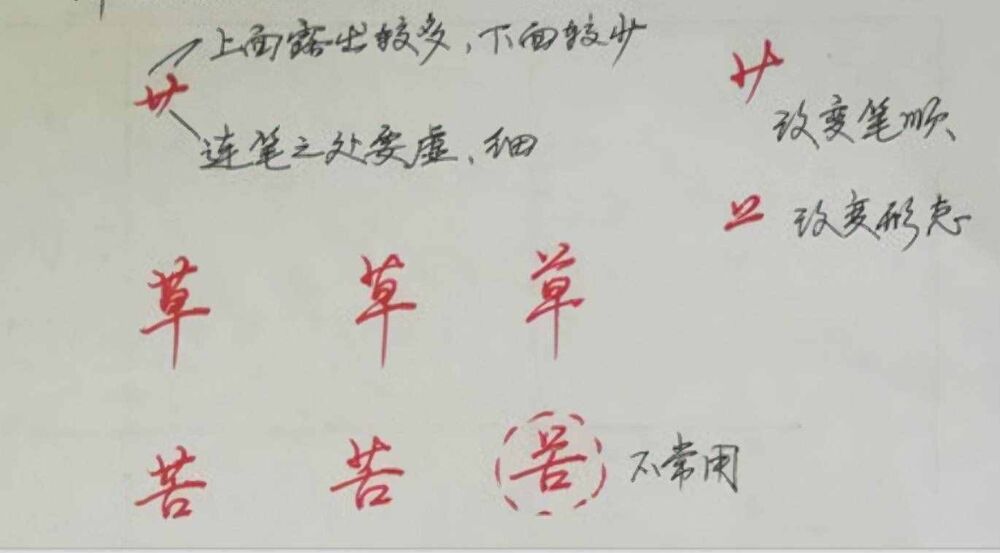 上面露出较多,下面较少
艹
艹
连笔之处要虚、细
改变笔顺
艹 改变形态
草 草 草
苦 苦 苦 不常用